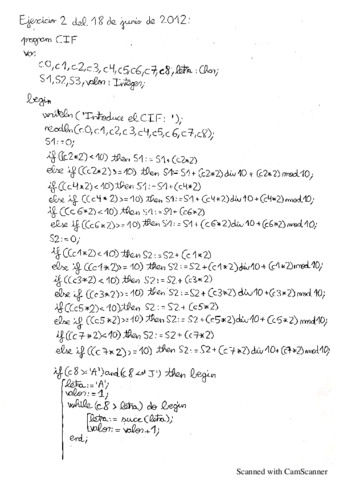 Ejercicio 2 del 18 de junio de 2012:
program CIF
var
c0,c1,c2,c3,c4,c5,c6,c7,c8,letra: Char;
S1,S2,S3,valor: Integer;
begin
writeln ('Introduce el CIF: ');
readln(c0,c1,c2,c3,c4,c5,c6,c7,c8);
S1:=0;
if ((c2*2)<10) then S1:=S1+(c2*2)
else if ((c2*2)>=10) then S1:=S1+(c2*2)div10+(c2*2)mod10;
if ((c4*2)<10) then S1:=S1+(c4*2)
else if ((c4*2)>=10) then S1:=S1+(c4*2)div10+(c4*2)mod10;
if ((c6*2)<10) then S1:=S1+(c6*2)
else if ((c6*2)>=10) then S1:=S1+(c6*2)div10+(c6*2)mod10;
S2:=0;
if ((c1*2)<10) then S2:=S2+(c1*2)
else if ((c1*2)>=10) then S2:=S2+(c1*2)div10+(c1*2)mod10;
if ((c3*2)<10) then S2:=S2+(c3*2)
else if ((c3*2)>=10) then S2:=S2+(c3*2)div10+(c3*2)mod10;
if ((c5*2)<10) then S2:=S2+(c5*2)
else if ((c5*2)>=10) then S2:=S2+(c5*2)div10+(c5*2)mod10;
if ((c7*2)<10) then S2:=S2+(c7*2)
else if ((c7*2)>=10) then S2:=S2+(c7*2)div10+(c7*2)mod10
if (c8>='A')and(c8<='J') then begin
letra:='A';
valor:=1;
while (c8>letra) do begin
letra:=succ(letra);
valor:=valor+1;
end;
Scanned with CamScanner